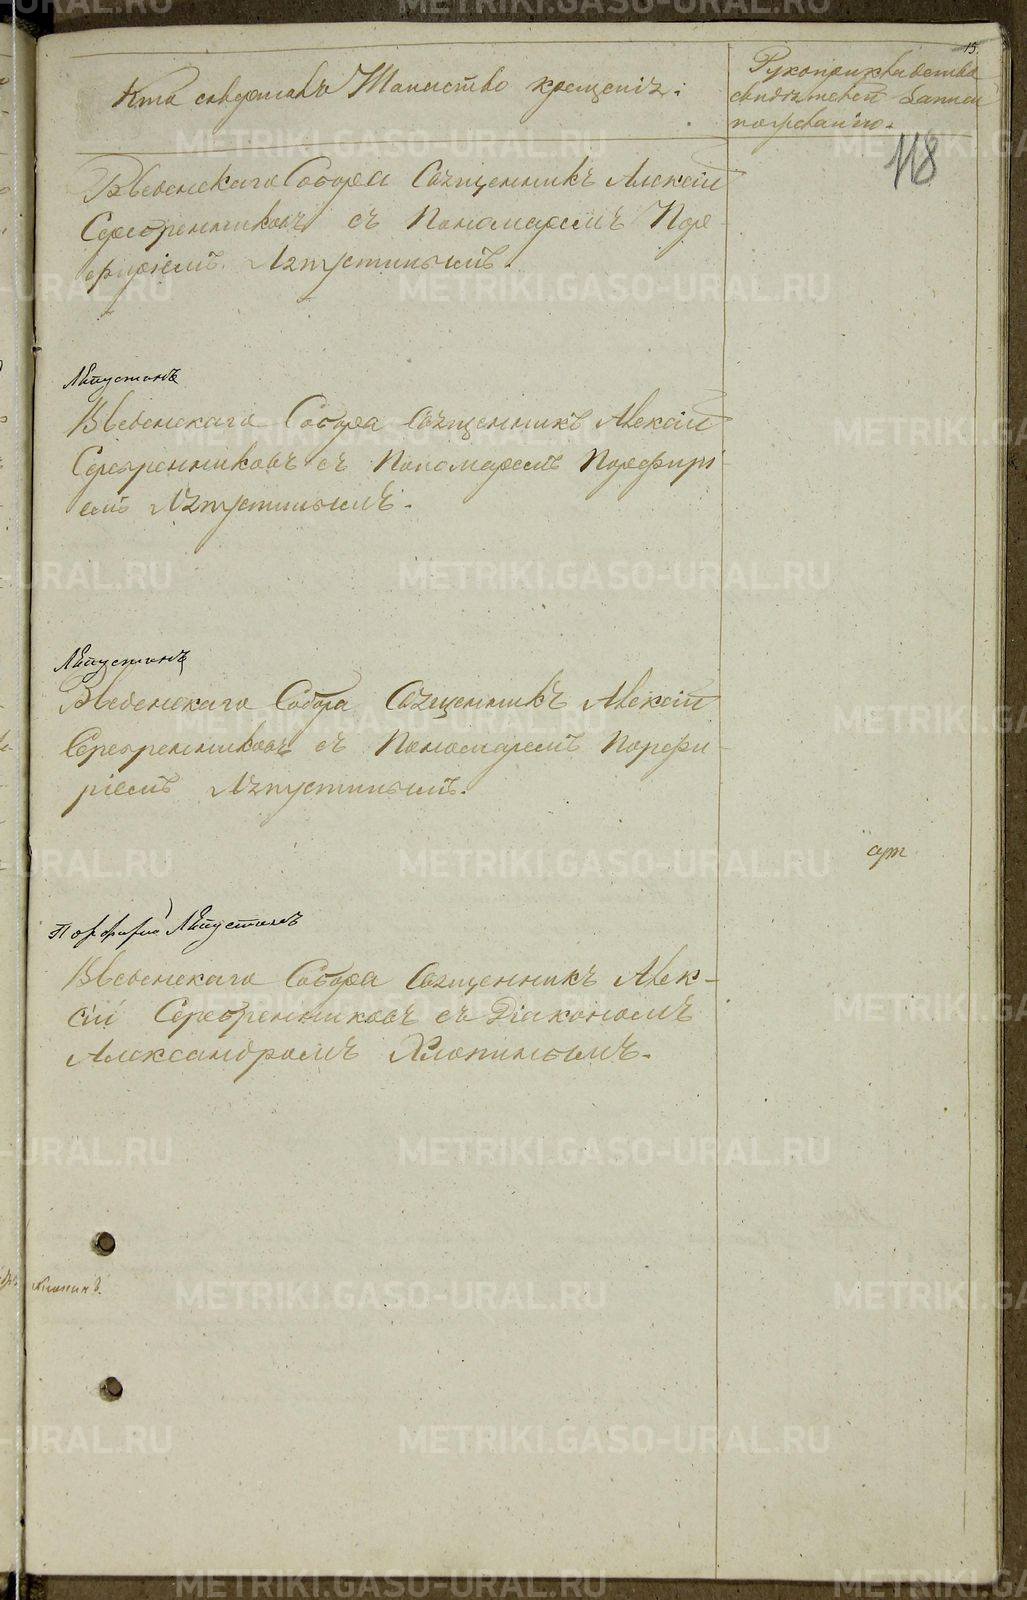 15.
Кто совершалъ Таинство крещенія:
Рукоприкладство
свидѣтелей записи
по желанію.
118
Введенскаго Собора Священникъ Алексій
Серебренниковъ съ Пономаремъ Пор-
фиріемъ Лѧпустинымъ.
Лѧпустинъ
Введенскаго Собора Священникъ Алексій
Серебренниковъ съ Пономаремъ Порфирі-
емъ Лѧпустинымъ.
Лѧпустинъ
Введенскаго Собора Священникъ Алексій
Серебренниковъ съ Пономаремъ Порфи-
ріемъ Лѧпустинымъ.
Порфирій Лѧпустинъ
Введенскаго Собора Священникъ Алек-
сій Серебренниковъ съ Діакономъ
Александромъ Хлопинымъ.
Хлопинъ.
METRIKI.GASO-URAL.RU